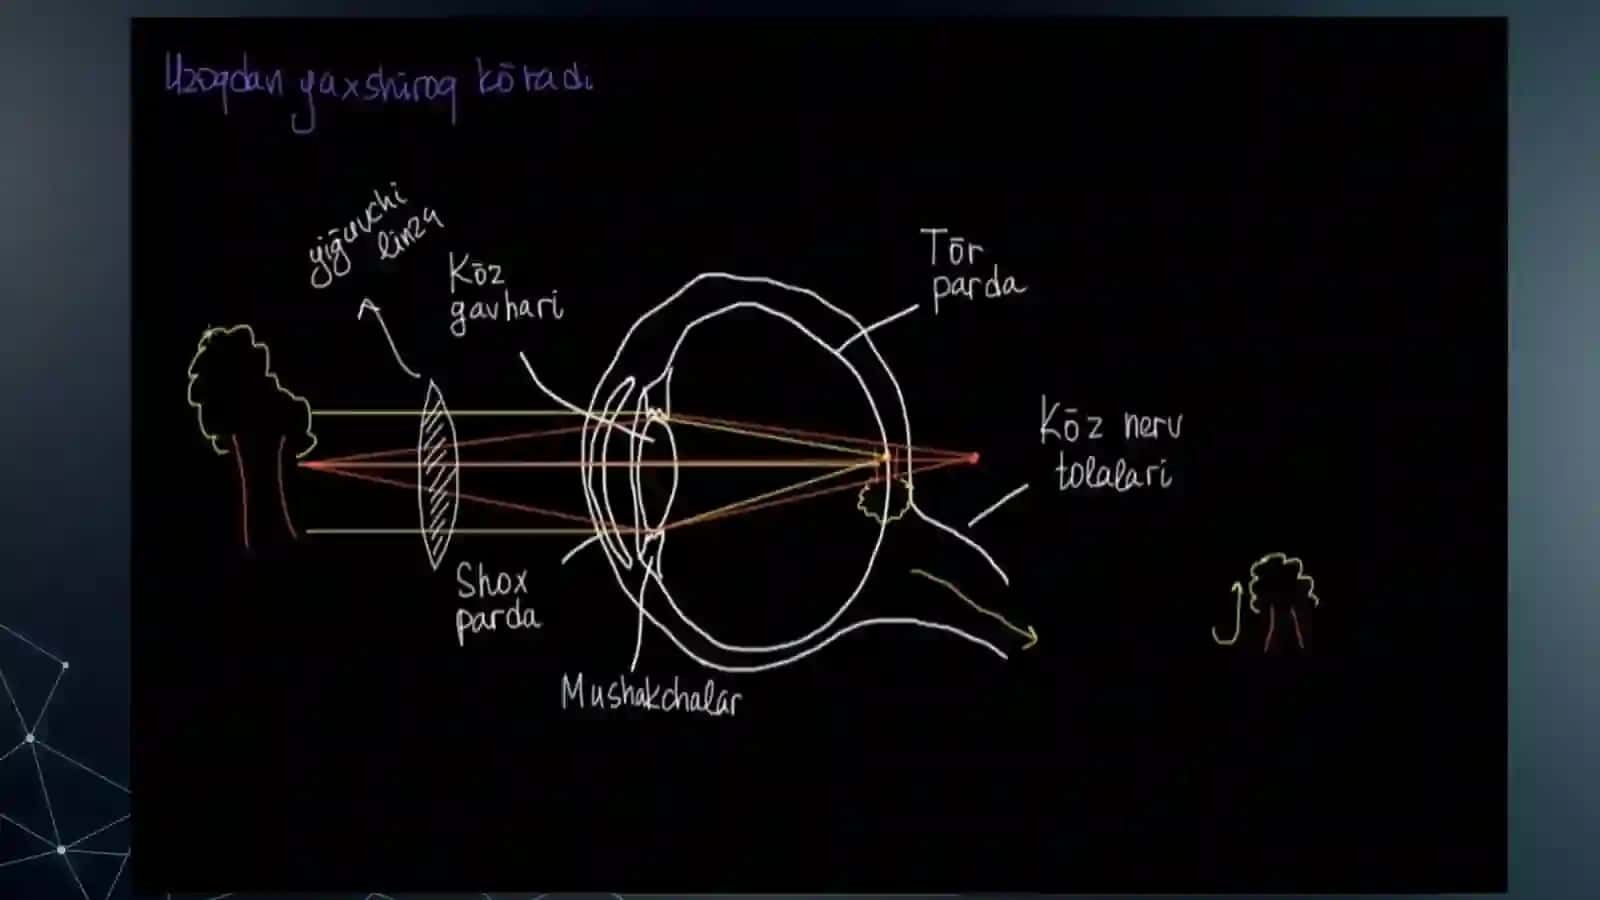 Uzoqdan yaxshiroq kōradi
yiğuvchi
linza
Kōz
gavhari
Tōr
parda
Kōz nerv
tolalari
Shox
parda
Mushakchalar